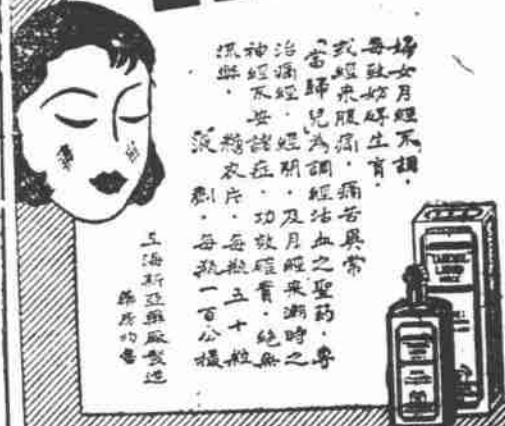 婦女月經不調，
每致妨碍生育，
或經來腹痛，痛苦異常
「當歸兒」為調經活血之聖药，專
治痛經·經閉·及月經來潮時之
神經不安諸症·功效確實·絕無
流弊·
糖衣片·每瓶五十粒
液劑·每瓶一百公撮
上海新亞藥廠製造
藥房均售